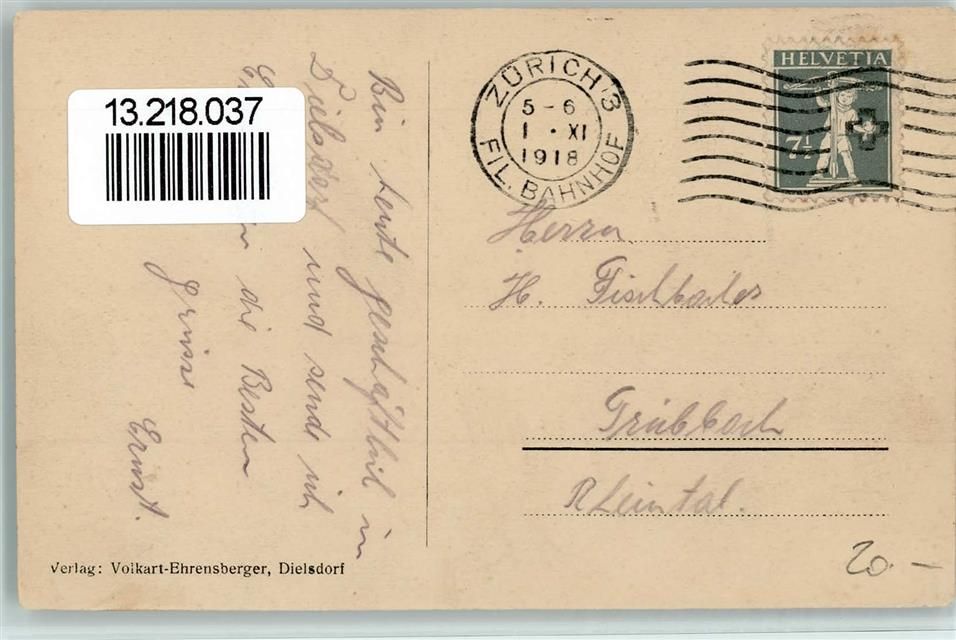 13.218.037
Bin heute geschäftlich in
Dielsdorf und sende ich
die Besten
Grüsse
Ernst.
Verlag: Volkart-Ehrensberger, Dielsdorf
ZÜRICH 3
5-6
1 · XI
1918
FIL. BAHNHOF
HELVETIA
7½
Herrn
H. Fischbacher
Trübbach
Rheintal.
20.-